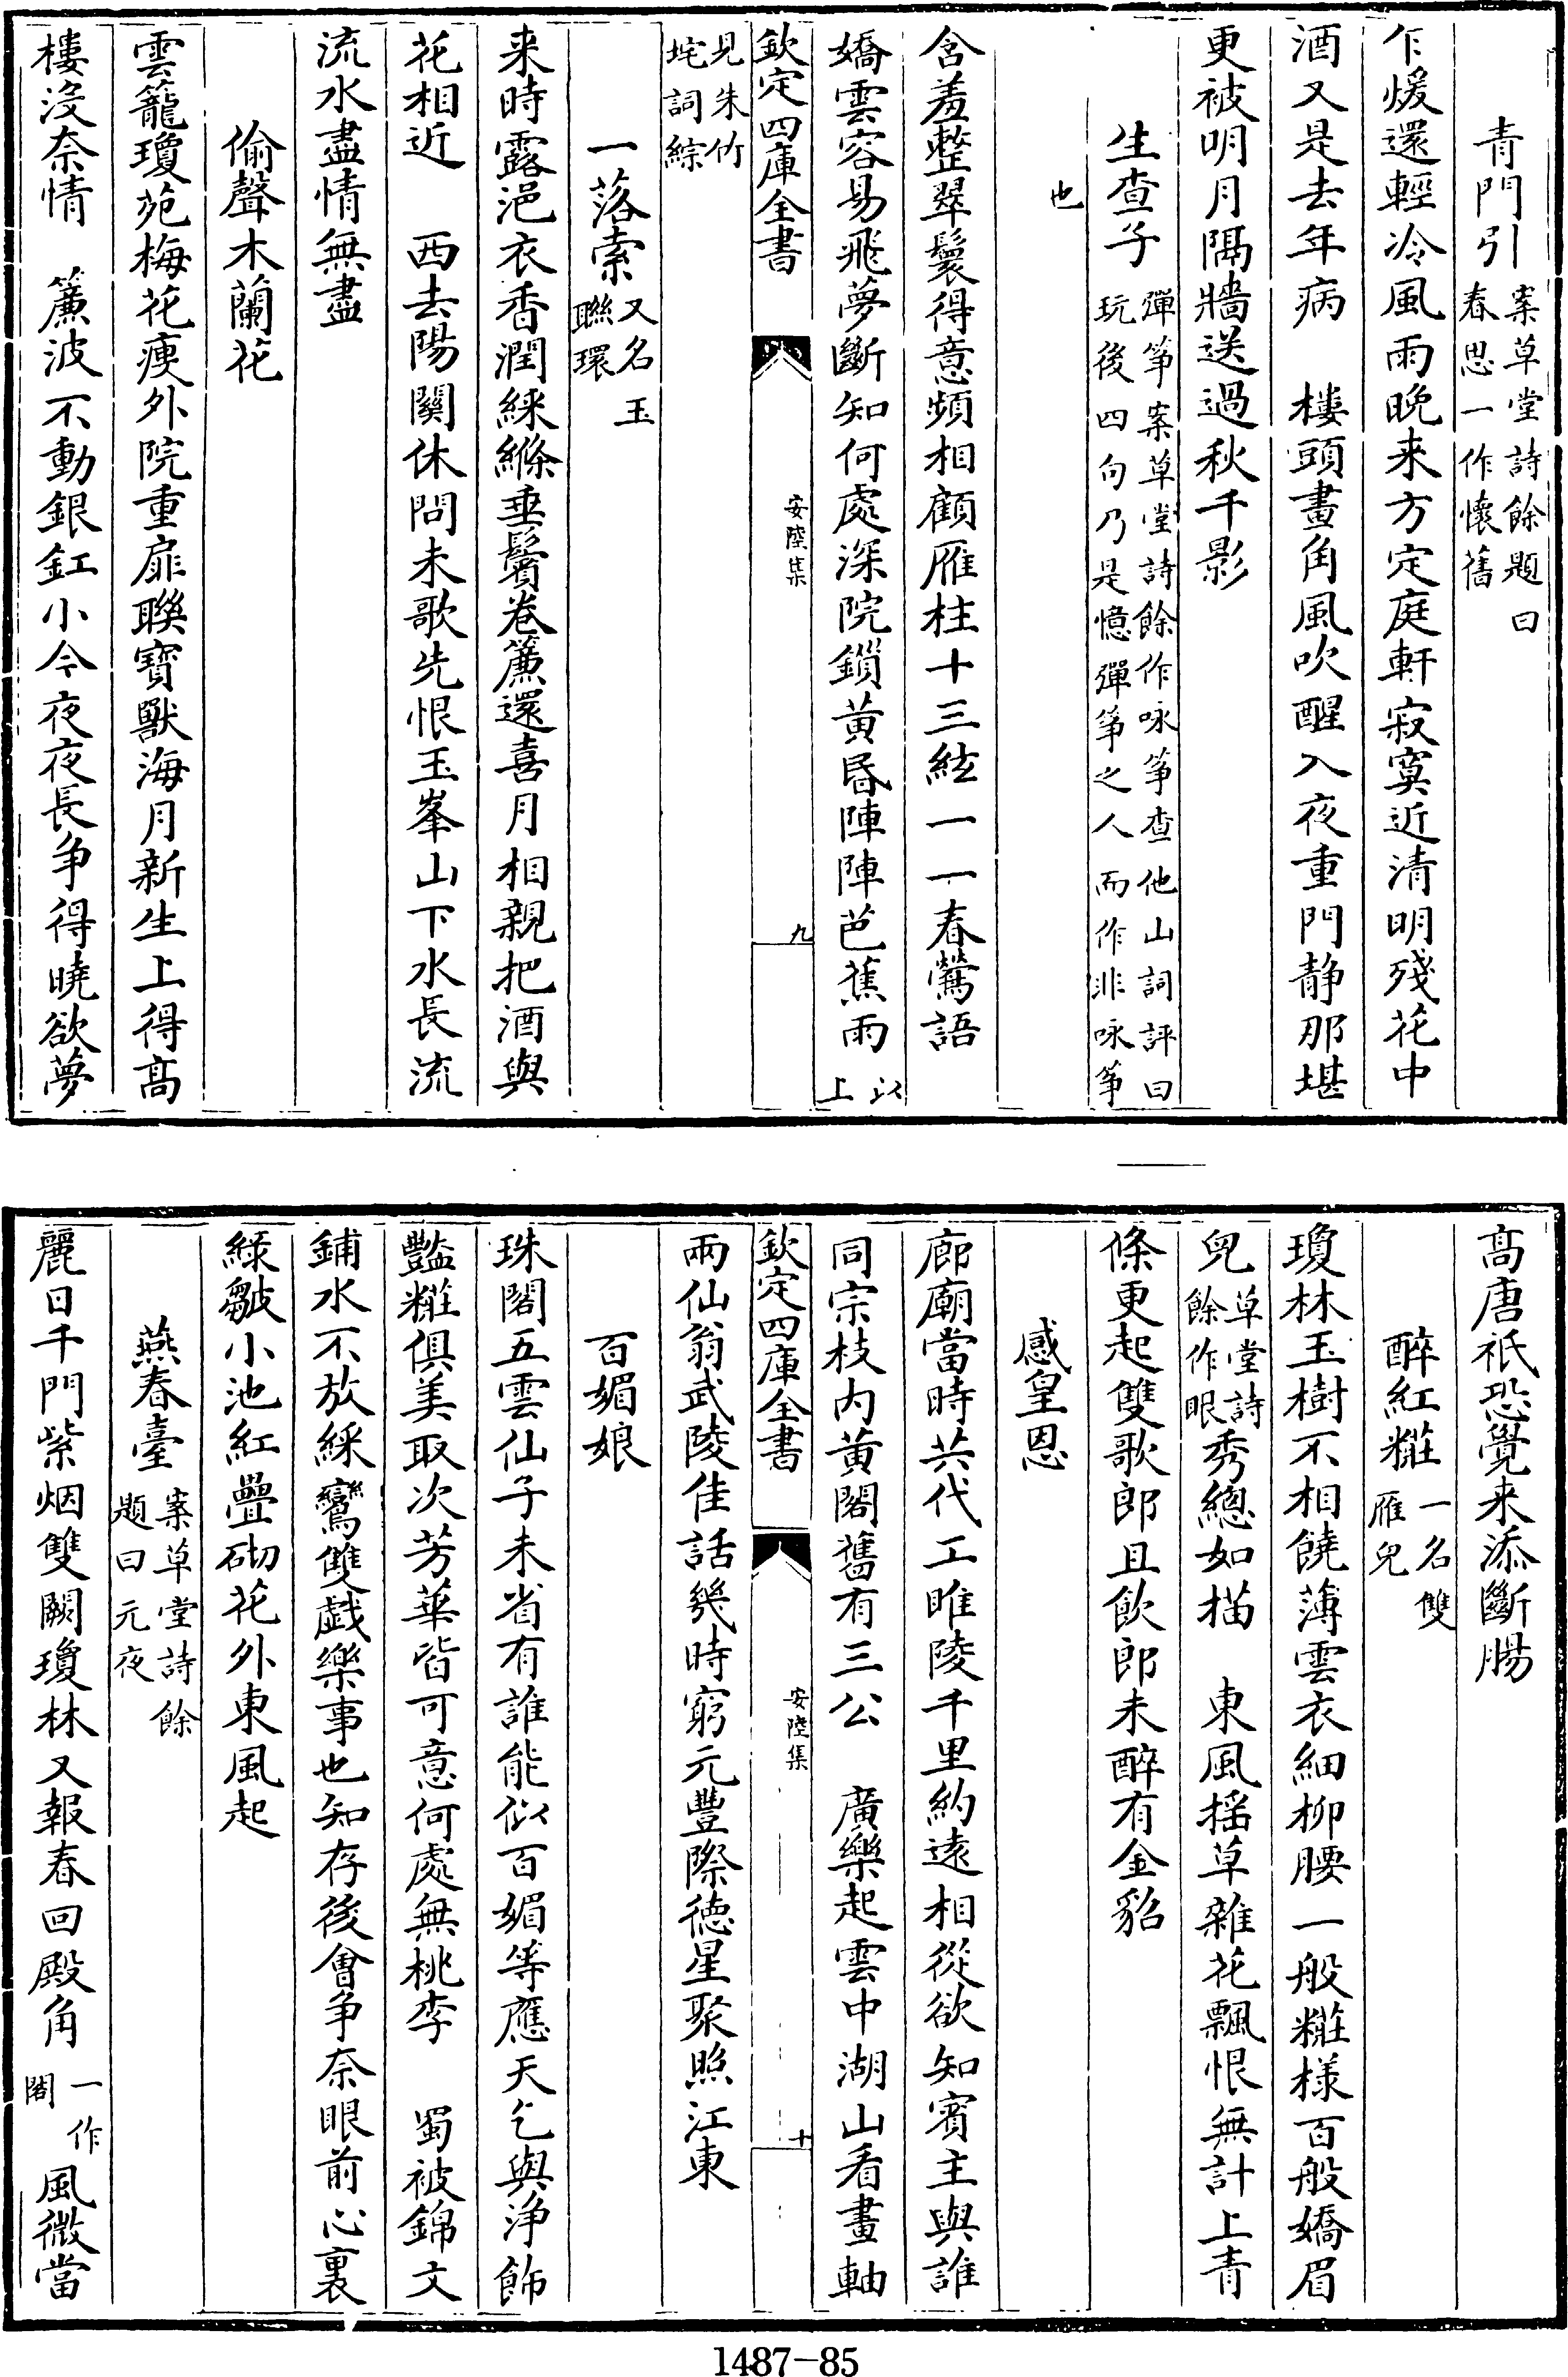 青門引案草堂詩餘題曰春思一作懷舊
乍煖還輕冷風雨晚来方定庭軒寂寞近清明殘花中
酒又是去年病　樓頭畫角風吹醒入夜重門静那堪
更被明月隔牆送過秋千影
生查子彈筝案草堂詩餘作咏筝查他山詞評曰玩後四句乃是憶彈筝之人而作非咏筝
也
含羞整翠鬟得意頻相顧雁柱十三絃一一春鶯語
嬌雲容易飛夢斷知何處深院鎖黄昏陣陣芭蕉雨以上
見朱竹垞詞綜
欽定四庫全書
安陸集
九
一落索又名玉聯環
来時露浥衣香潤綵縧垂鬢卷簾還喜月相親把酒與
花相近　西去陽關休問未歌先恨玉峯山下水長流
流水盡情無盡
偷聲木蘭花
雲籠瓊苑梅花瘦外院重扉聯寶獸海月新生上得高
樓没奈情　簾波不動銀釭小今夜夜長争得曉欲夢
高唐祇恐覺来添斷腸
醉紅糚一名雙雁兒
瓊林玉樹不相饒薄雲衣細柳腰一般糚様百般嬌眉
兒草堂詩餘作眼秀總如描　東風揺草雜花飄恨無計上青
條更起雙歌郎且飲郎未醉有金貂
感皇恩
廊廟當時共代工睢陵千里約遠相從欲知賓主與誰
同宗枝内黄閣舊有三公　廣樂起雲中湖山看畫軸
兩仙翁武陵佳話幾時窮元豐際德星聚照江東
欽定四庫全書
安陸集
十
百媚娘
珠閣五雲仙子未省有誰能似百媚等應天乞與浄飾
豔糚俱美取次芳華皆可意何處無桃李　蜀被錦文
鋪水不放綵鸞雙戯樂事也知存後會争奈眼前心裏
緑皺小池紅疊砌花外東風起
燕春臺案草堂詩餘題曰元夜
麗日千門紫烟雙闕瓊林又報春回殿角一作閣風微當
1487-85